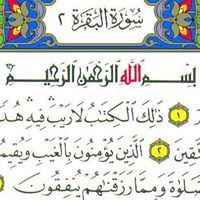 سُورَةُ الْبَقَرَةِ ٢
بِسْمِ اللَّهِ الرَّحْمَٰنِ الرَّحِيمِ
١ ذَٰلِكَ الْكِتَٰبُ لَا رَيْبَ فِيهِ هُدً
قِينَ ٢ الَّذِينَ يُؤْمِنُونَ بِالْغَيْبِ وَيُقِيمُ
صَّلَوٰةَ وَمِمَّا رَزَقْنَٰهُمْ يُنْفِقُونَ